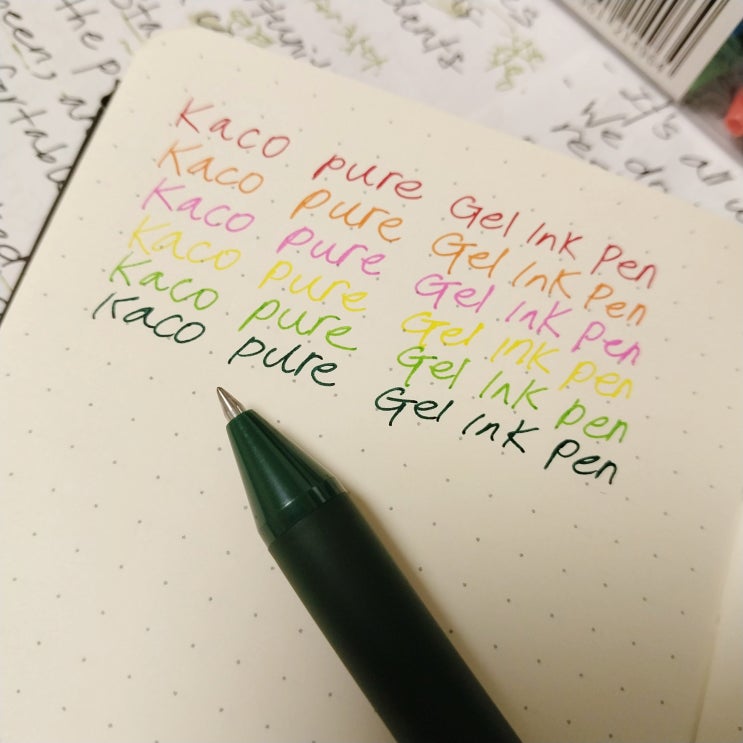 Kaco pure Gel Ink Pen
Kaco pure Gel Ink Pen
Kaco pure Gel Ink Pen
Kaco pure Gel Ink Pen
Kaco pure Gel Ink Pen
Kaco pure Gel Ink Pen
the
It's all
We